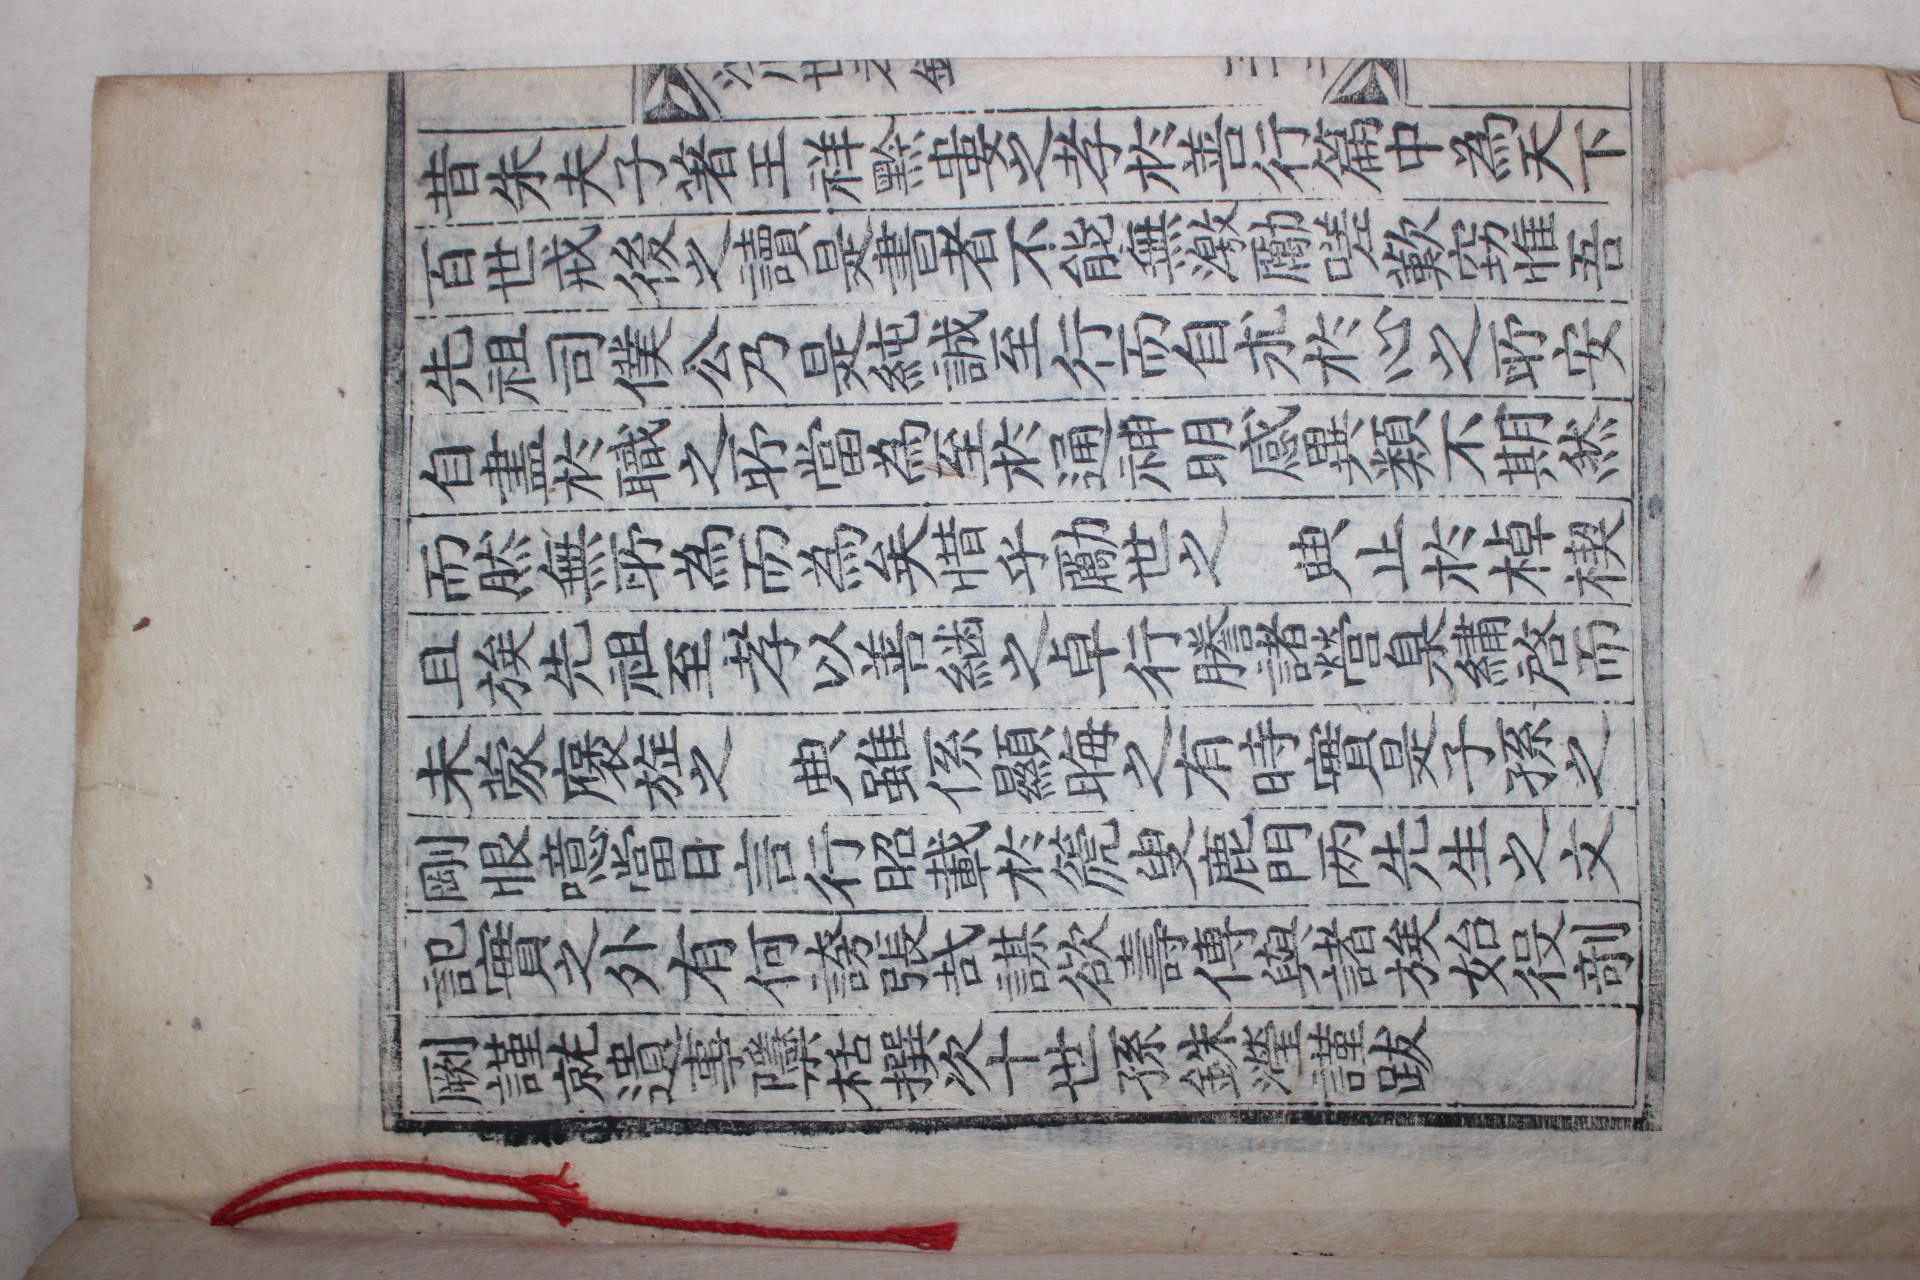 昔朱夫子著王祥黔婁之孝於善行篇中爲天下
百世戒後之讀是書者不能無激勵嗟歎竊惟吾
先祖司僕公乃是純誠至行而自求於心之所安
自盡於職之所當爲至於通神明感異類不期然
而然無所爲而爲矣惜乎勵世之 典止於棹楔
且族先祖至孝以善繼之卓行勝諸營臬繡啓而
未蒙褒旌之 典雖係顯晦之有時實是子孫之
劚恨噫當日言行昭載於篪叟鹿門兩先生之文
記實之外有何誇張哉謀欲壽傳與諸族始役剞
劂謹就遺事隱括撰次十世孫銖瀅謹跋